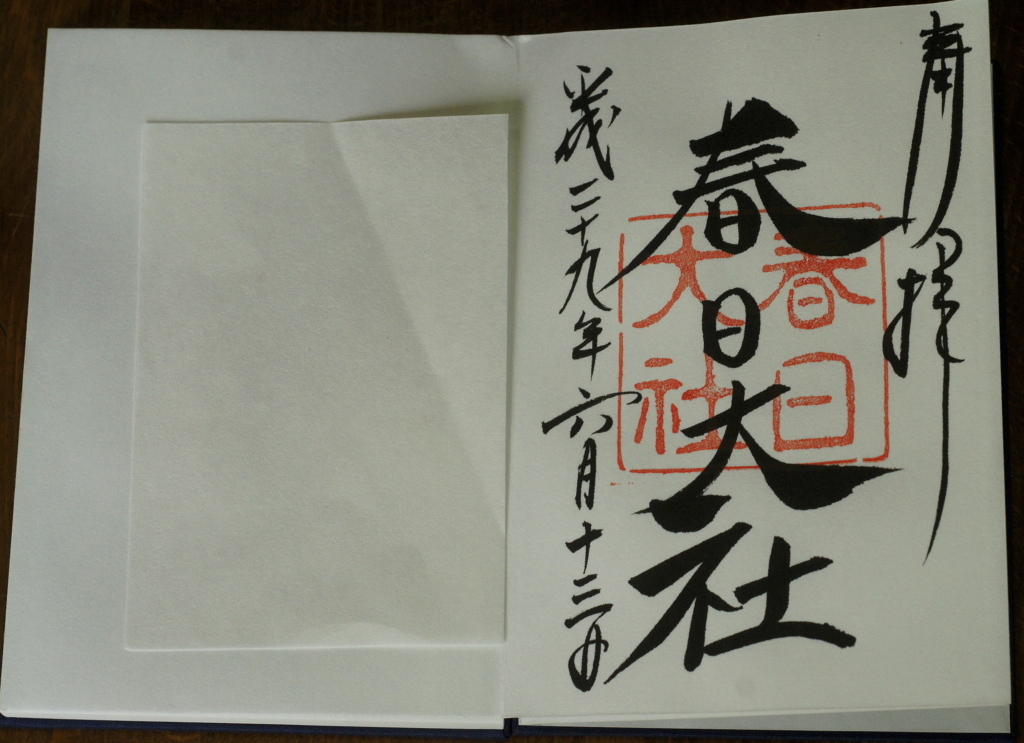 奉拝
春日大社
春日
大社
平成二十九年六月十三日